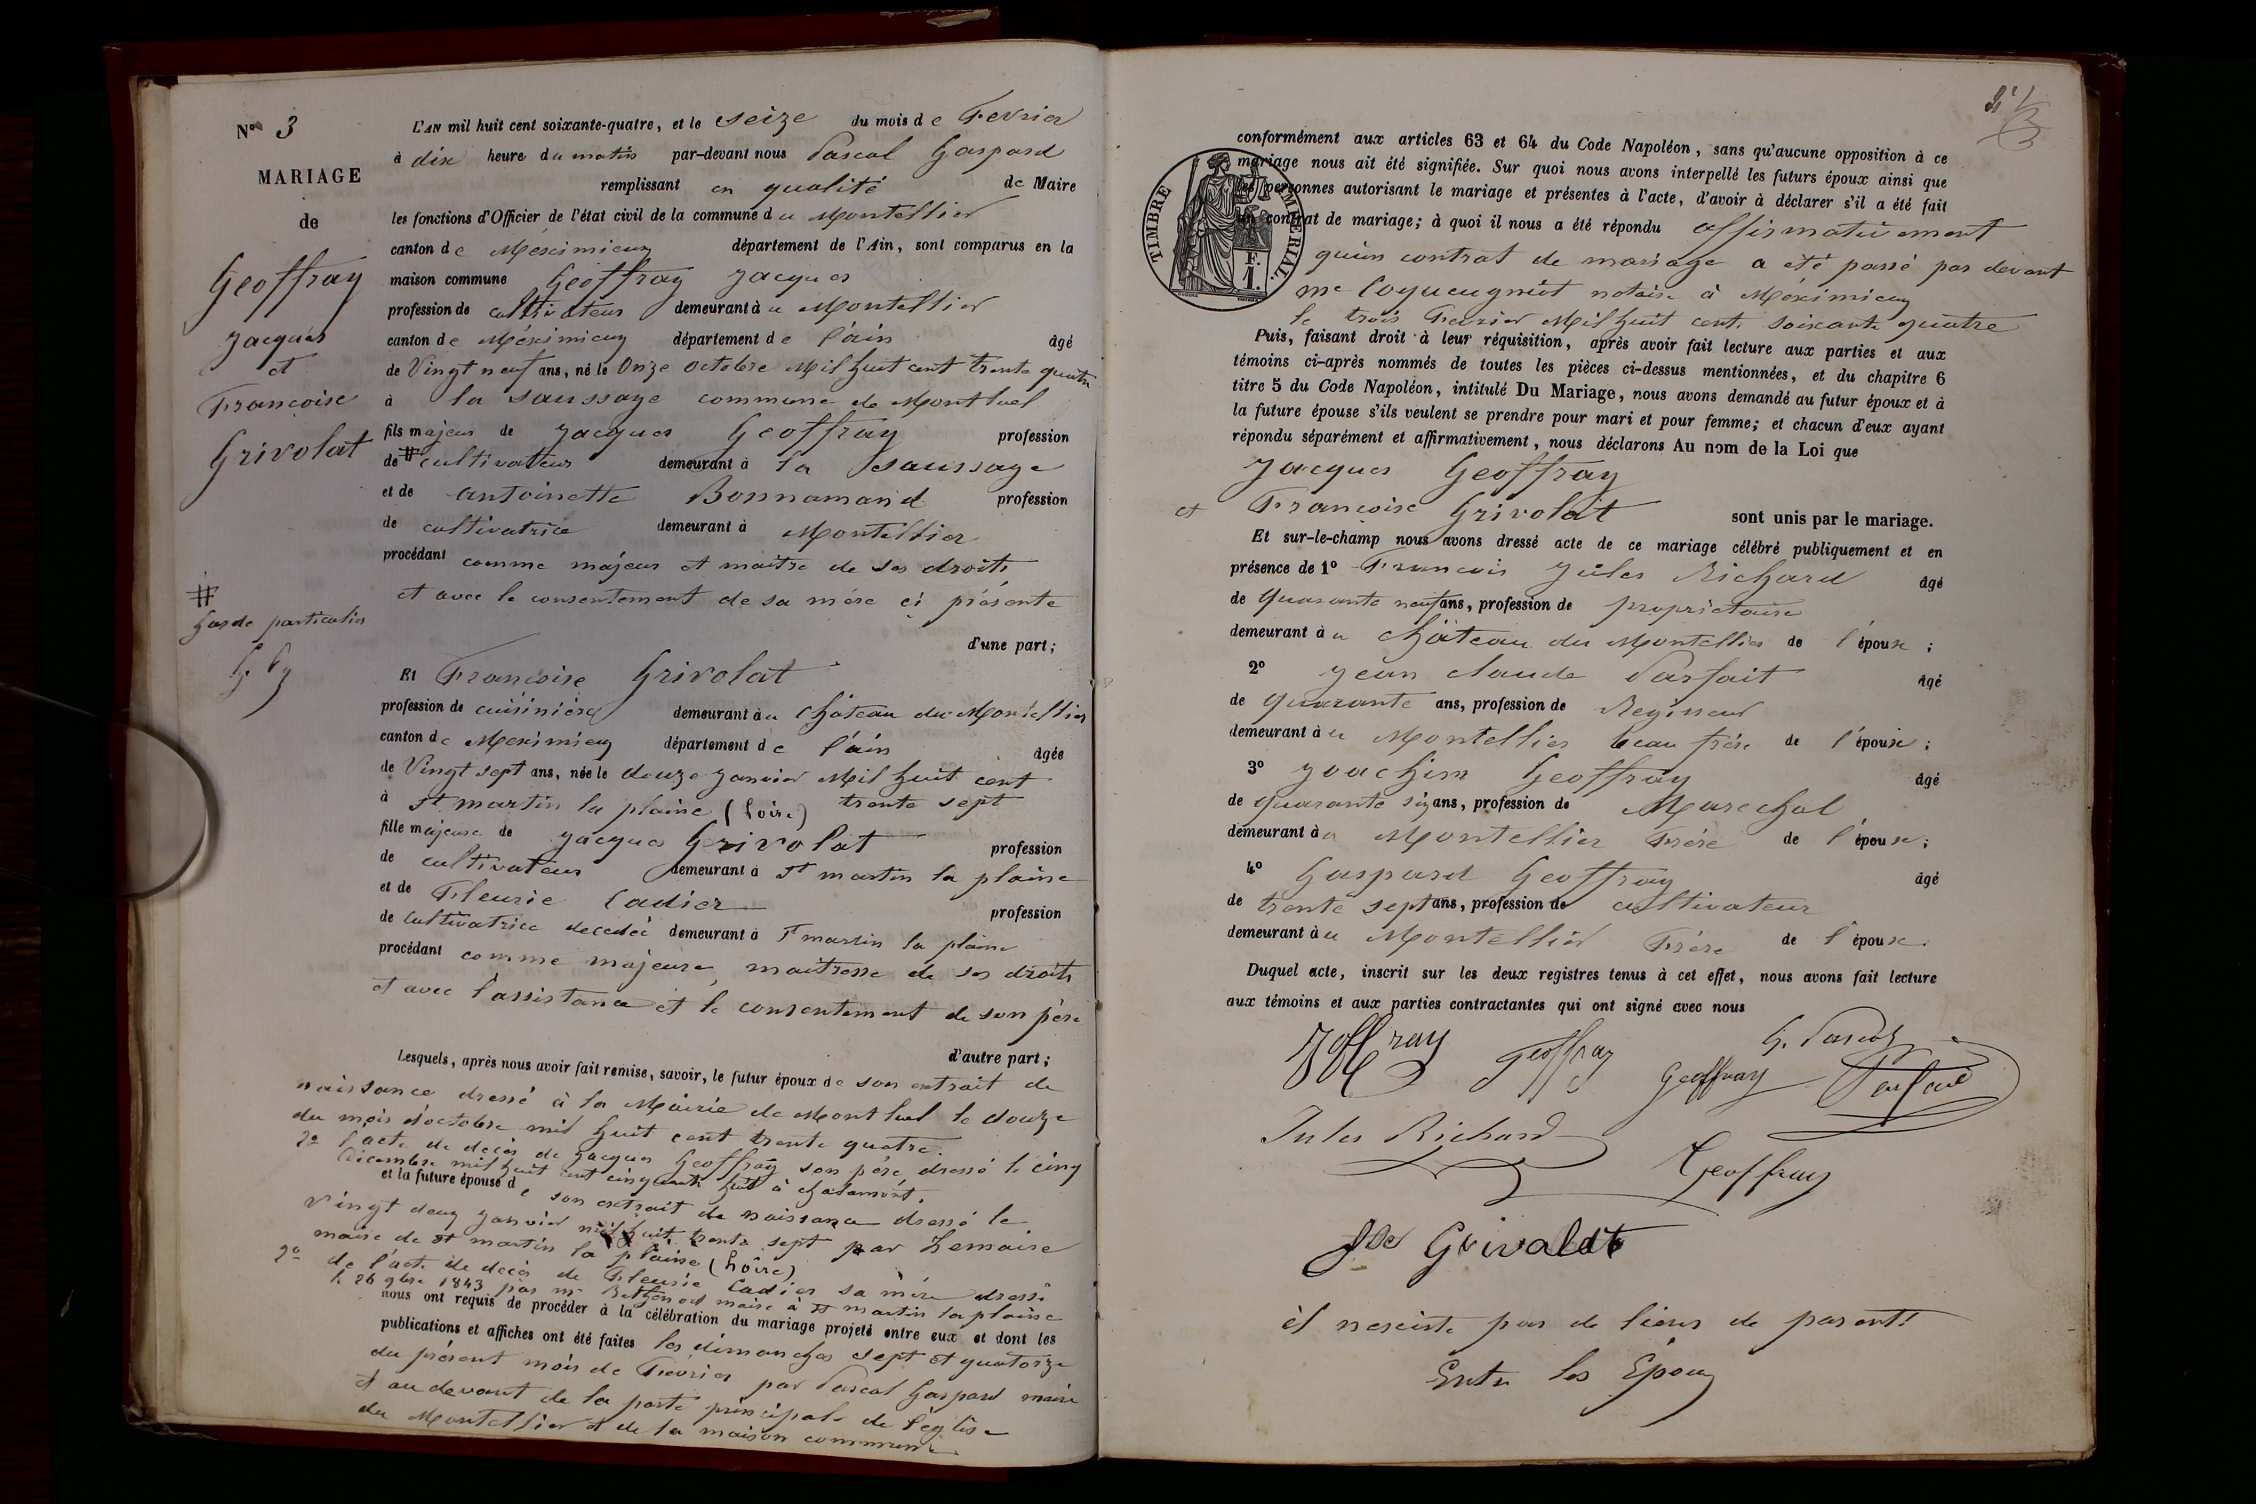 N° 3
MARIAGE
de
Geoffray
Jacques
et
Francoise
Grivolat
#
Garde particulier
L'AN mil huit cent soixante-quatre, et le seize du mois de Fevrier
à dix heure du matin par-devant nous Pascal Gaspard
remplissant en qualité de Maire
les fonctions d'Officier de l'état civil de la commune du Montellier
canton de Méximieux département de l'Ain, sont comparus en la
maison commune Geoffray Jacques
profession de cultivateur demeurant à u Montellier
canton de Méximieux département de l'ain âgé
de Vingt neuf ans, né le Onze octobre Mil huit cent trente quatre
à la saussaye commune de Montluel
fils majeur de Jacques Geoffray profession
de # cultivateur demeurant à la Saussaye
et de antoinette Bonnamand profession
de cultivatrice demeurant à Montellier
procédant comme majeur et maitre de ses droits
et avec le consentement de sa mère ci présente
d'une part;
Et Francoise Grivolat
profession de cuisinière demeurant à u Château du Montellier
canton de Meximieux département de l'ain âgée
de Vingt sept ans, née le douze Janvier Mil huit cent
à St martin la plaine (Loire) trente sept
fille majeure de Jacques Grivolat profession
de cultivateur demeurant à St martin la plaine
et de Fleurie Cadier profession
de Cultivatrice decedée demeurant à St martin la plaine
procédant comme majeure, maitresse de ses droits
et avec l'assistance et le consentement de son père
d'autre part;
Lesquels, après nous avoir fait remise, savoir, le futur époux de son extrait de
naissance dressé à la Mairie de Montluel le douze
du mois d'octobre mil huit cent trente quatre.
2° l'acte de décès de Jacques Geoffray son père, dressé le cinq
Décembre mil huit cent cinquante huit à chalamont.
et la future épouse de son extrait de naissance dressé le
Vingt deux Janvier mil huit trente sept par Lemaire
maire de St martin la plaine (Loire)
2° de l'acte de décès de Fleurie Cadier sa mère dressé
le 26 9bre 1843 par mr maire à St martin la plaine
nous ont requis de procéder à la célébration du mariage projeté entre eux et dont les
publications et affiches ont été faites les dimanches sept et quatorze
du présent mois de Fevrier par Pascal Gaspard maire
et au devant de la porte principale de l'église
du Montellier et de la maison commune
conformément aux articles 63 et 64 du Code Napoléon, sans qu'aucune opposition à ce
mariage nous ait été signifiée. Sur quoi nous avons interpellé les futurs époux ainsi que
les personnes autorisant le mariage et présentes à l'acte, d'avoir à déclarer s'il a été fait
un contrat de mariage; à quoi il nous a été répondu affirmativement
TIMBRE IMPERIAL.
1 F.
qu'un contrat de mariage a été passé par devant
me Coqueugniot notaire à Méximieux
le trois Fevrier Mil huit cent soixante quatre
Puis, faisant droit à leur réquisition, après avoir fait lecture aux parties et aux
témoins ci-après nommés de toutes les pièces ci-dessus mentionnées, et du chapitre 6
titre 5 du Code Napoléon, intitulé Du Mariage, nous avons demandé au futur époux et à
la future épouse s'ils veulent se prendre pour mari et pour femme; et chacun d'eux ayant
répondu séparément et affirmativement, nous déclarons Au nom de la Loi que
Jacques Geoffray
et Francoise Grivolat sont unis par le mariage.
Et sur-le-champ nous avons dressé acte de ce mariage célébré publiquement et en
présence de 1° Francois Jules Richard âgé
de quarante neuf ans, profession de propriétaire
demeurant à u Château du Montellier de l'épouse;
2° Jean claude Parfait âgé
de quarante ans, profession de Regisseur
demeurant à u Montellier beau frère de l'épouse;
3° Joachim Geoffray âgé
de quarante six ans, profession de Marechal
demeurant à u Montellier Frère de l'épouse;
4° Gaspard Geoffray âgé
de trente sept ans, profession de cultivateur
demeurant à u Montellier Frère de l'épouse.
Duquel acte, inscrit sur les deux registres tenus à cet effet, nous avons fait lecture
aux témoins et aux parties contractantes qui ont signé avec nous
Joffray Geoffray Geoffray G. Pascal Parfait
Jules Richard Geoffray
Grivaldt
il nexiste pas de liens de parenté
Entre les Epoux